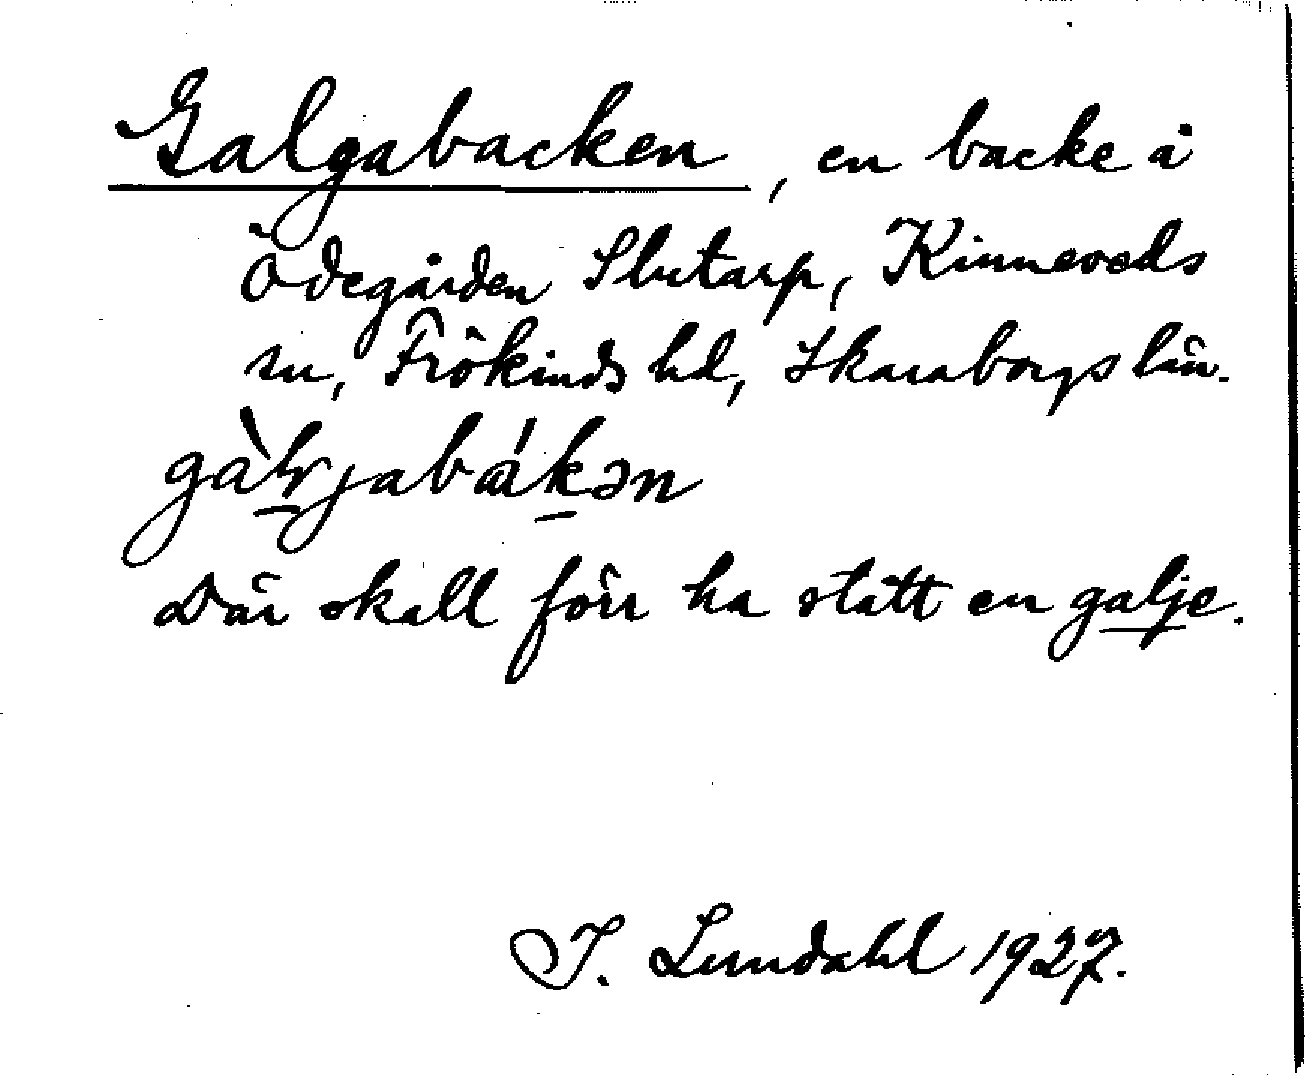 Galgabacken, en backe å
Ödegården Slutarp, Kinneveds
sn, Frökinds hd, Skaraborgs län.
Där skall förr ha stått en galje.
I. Lundahl 1927.